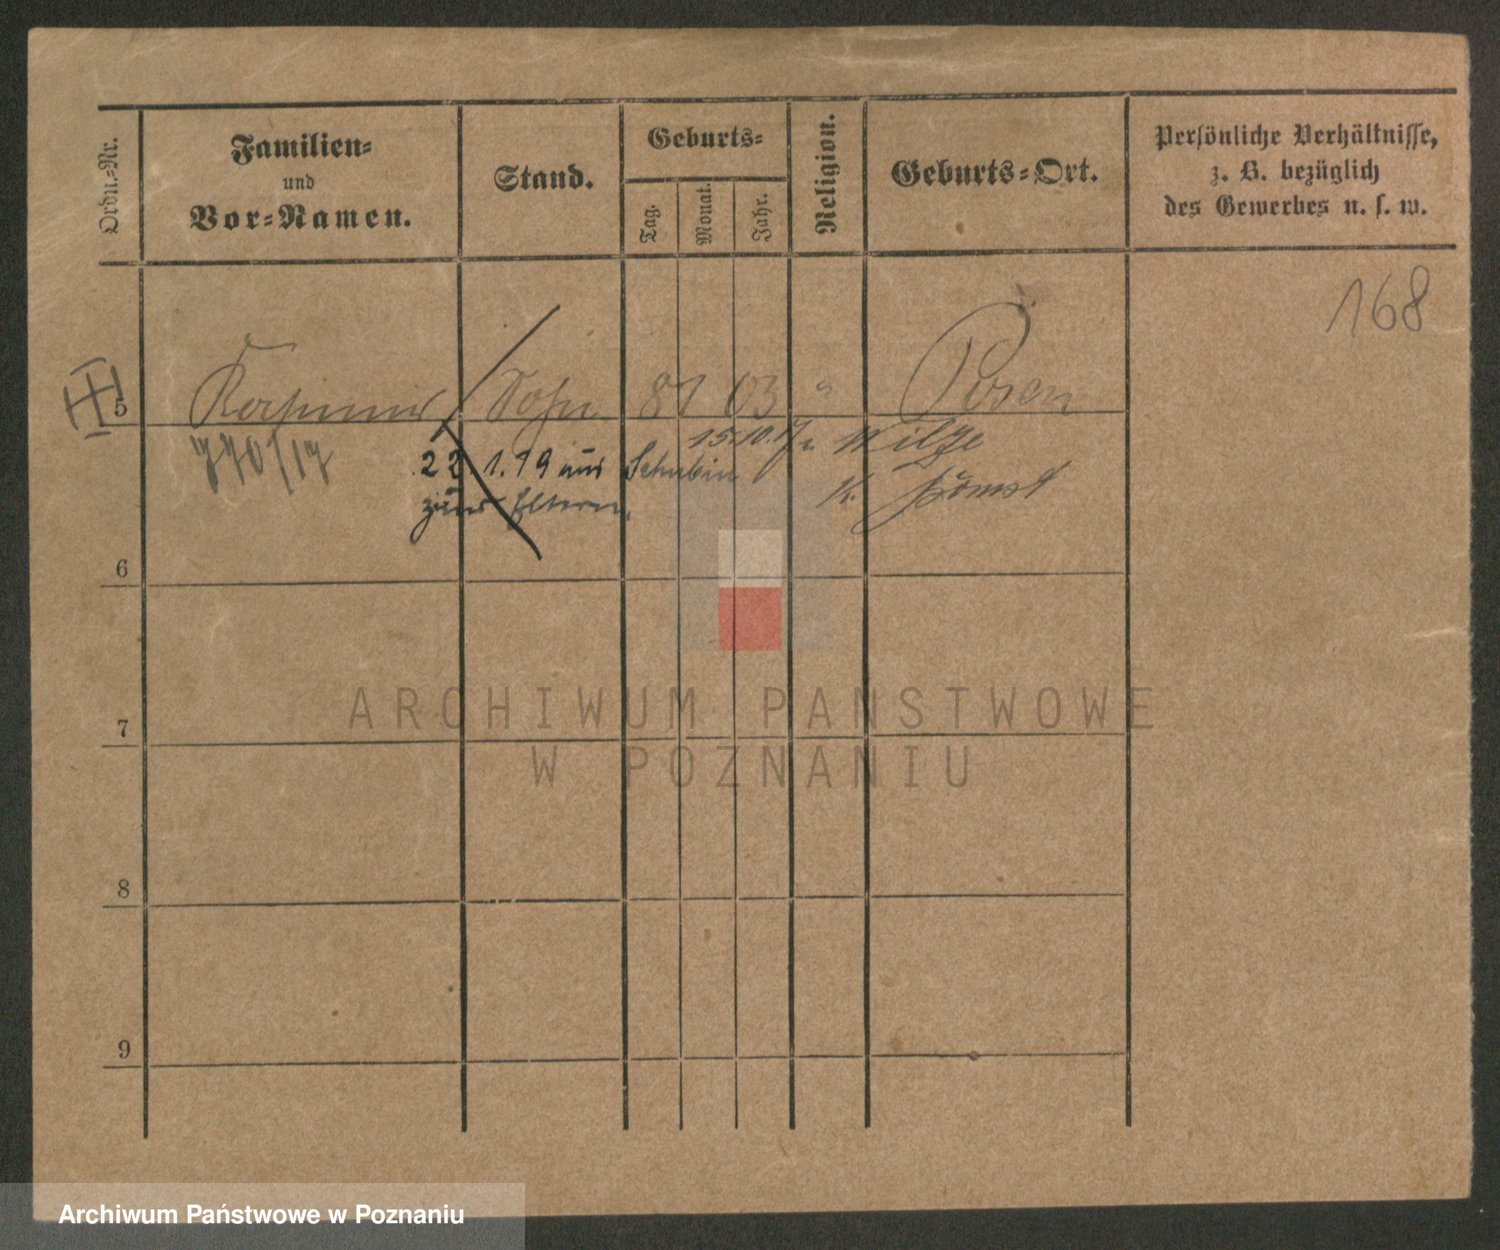 Ordn.-Nr.
Familien-
und
Vor-Namen.
Stand.
Geburts-
Tag.
Monat.
Jahr.
Religion.
Geburts-Ort.
Persönliche Verhältnisse,
z. B. bezüglich
des Gewerbes u. s. w.
168
5
Sohn
03
Posen
770/17
15.10.17 n Wilze
22.1.19 aus Schubin
K. Bomst
zu Eltern.
6
7
8
9
ARCHIWUM PAŃSTWOWE
W POZNANIU
Archiwum Państwowe w Poznaniu